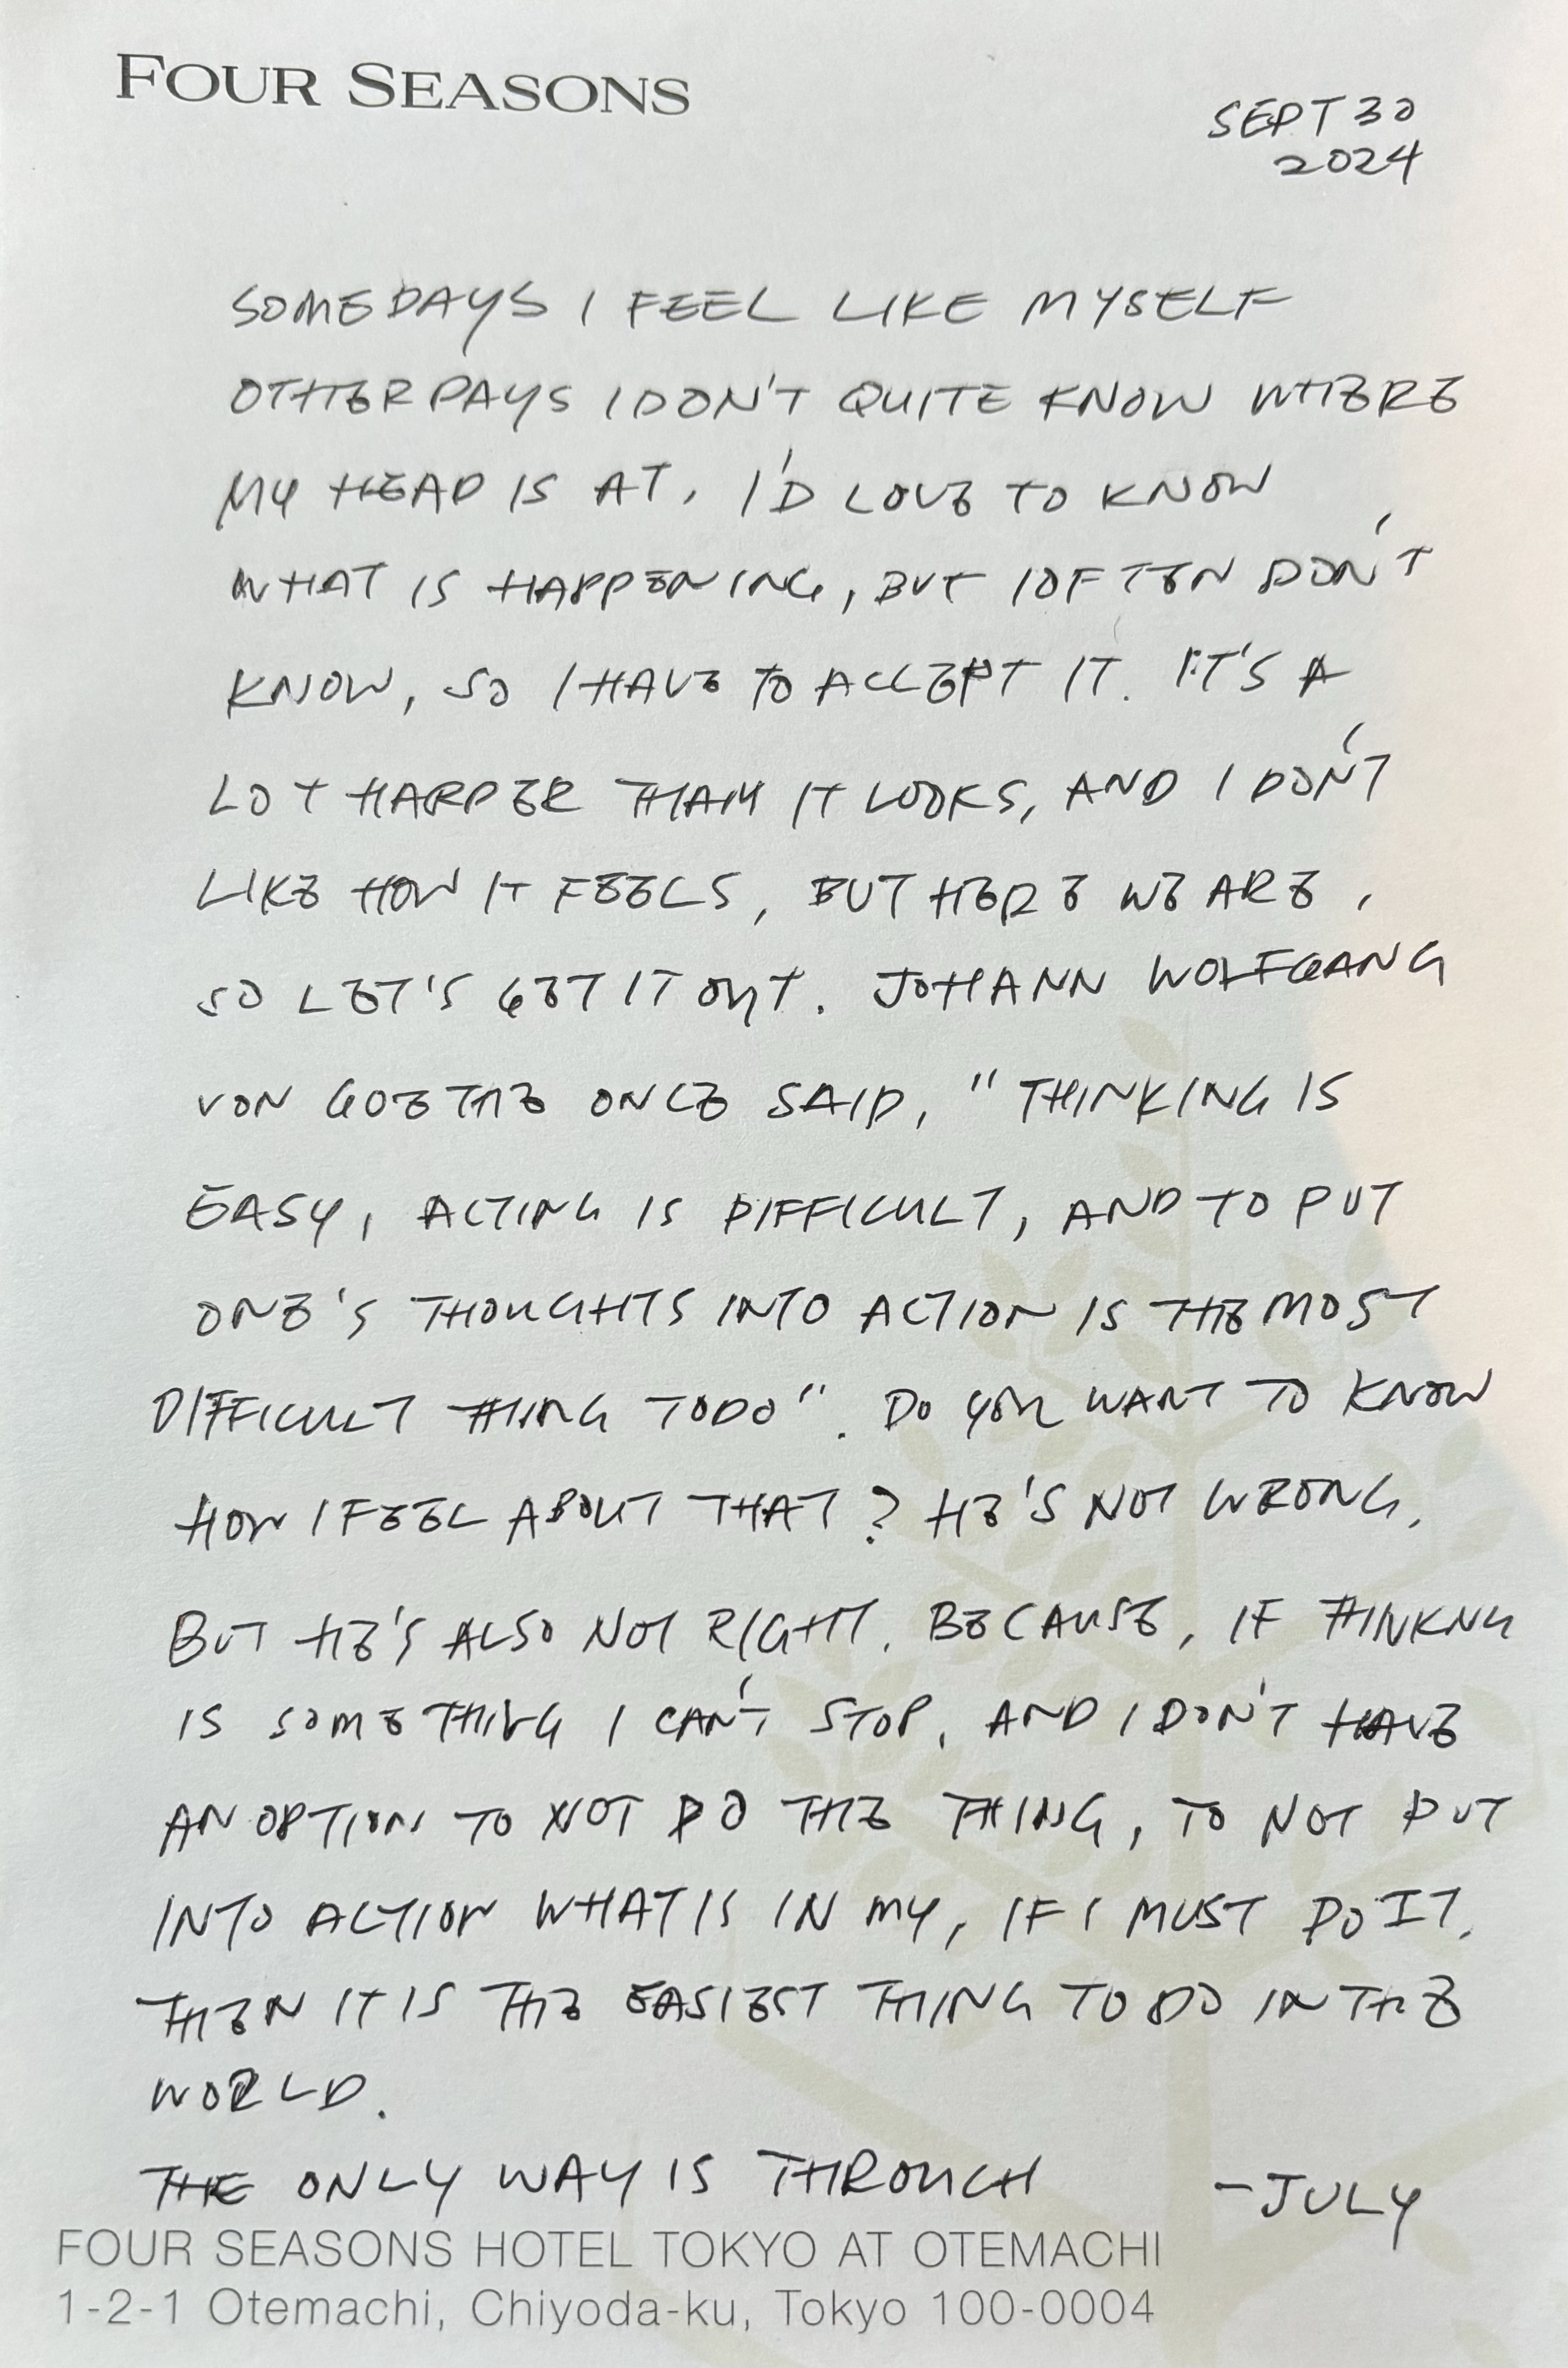 FOUR SEASONS
SEPT 30
2024
SOMEDAYS I FEEL LIKE MYSELF
OTHER DAYS I DON'T QUITE KNOW WHERE
MY HEAD IS AT, I'D LOVE TO KNOW
WHAT IS HAPPENING, BUT I OFTEN DON'T
KNOW, SO I HAVE TO ACCEPT IT. IT'S A
LOT HARDER THAN IT LOOKS, AND I DON'T
LIKE HOW IT FEELS, BUT HERE WE ARE,
SO LET'S GET IT OUT. JOHANN WOLFGANG
VON GOETHE ONCE SAID, "THINKING IS
EASY, ACTING IS DIFFICULT, AND TO PUT
ONE'S THOUGHTS INTO ACTION IS THE MOST
DIFFICULT THING TO DO". DO YOU WANT TO KNOW
HOW I FEEL ABOUT THAT? HE'S NOT WRONG,
BUT HE'S ALSO NOT RIGHT. BECAUSE, IF THINKNG
IS SOMETHING I CAN'T STOP, AND I DON'T HAVE
AN OPTION TO NOT DO THE THING, TO NOT PUT
INTO ACTION WHAT IS IN MY, IF I MUST DO IT,
THEN IT IS THE EASIEST THING TO DO IN THE
WORLD.
THE ONLY WAY IS THROUGH
-JULY
FOUR SEASONS HOTEL TOKYO AT OTEMACHI
1-2-1 Otemachi, Chiyoda-ku, Tokyo 100-0004